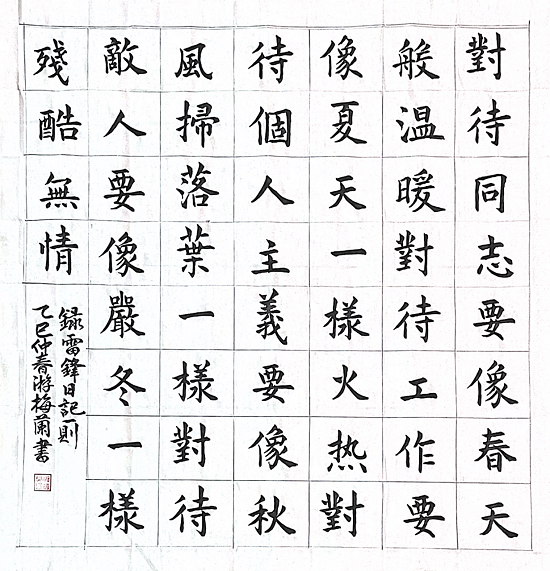 對待同志要像春天
般温暖對待工作要
像夏天一樣火热對
待個人主義要像秋
風掃落葉一樣對待
敵人要像嚴冬一樣
殘酷無情
録雷鋒日記一則
乙巳仲春游梅蘭書